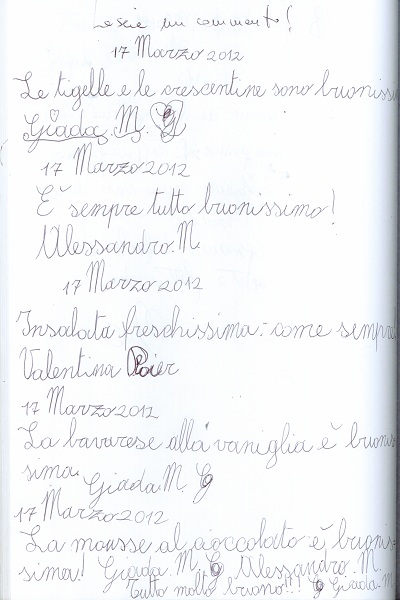 Lascia un commento!
17 Marzo 2012
Le tigelle e le crescentine sono buonissi
Giada. M. G
17 Marzo 2012
È sempre tutto buonissimo!
Alessandro. M.
17 Marzo 2012
Insalata freschissima: come sempre
Valentina
17 Marzo 2012
La bavarese alla vaniglia è buonis
sima. Giada. M. G
17 Marzo 2012
La mousse al cioccolato è buonis
sima! Giada. M. G Alessandro. M.
Tutto molto buono!!! G Giada. M